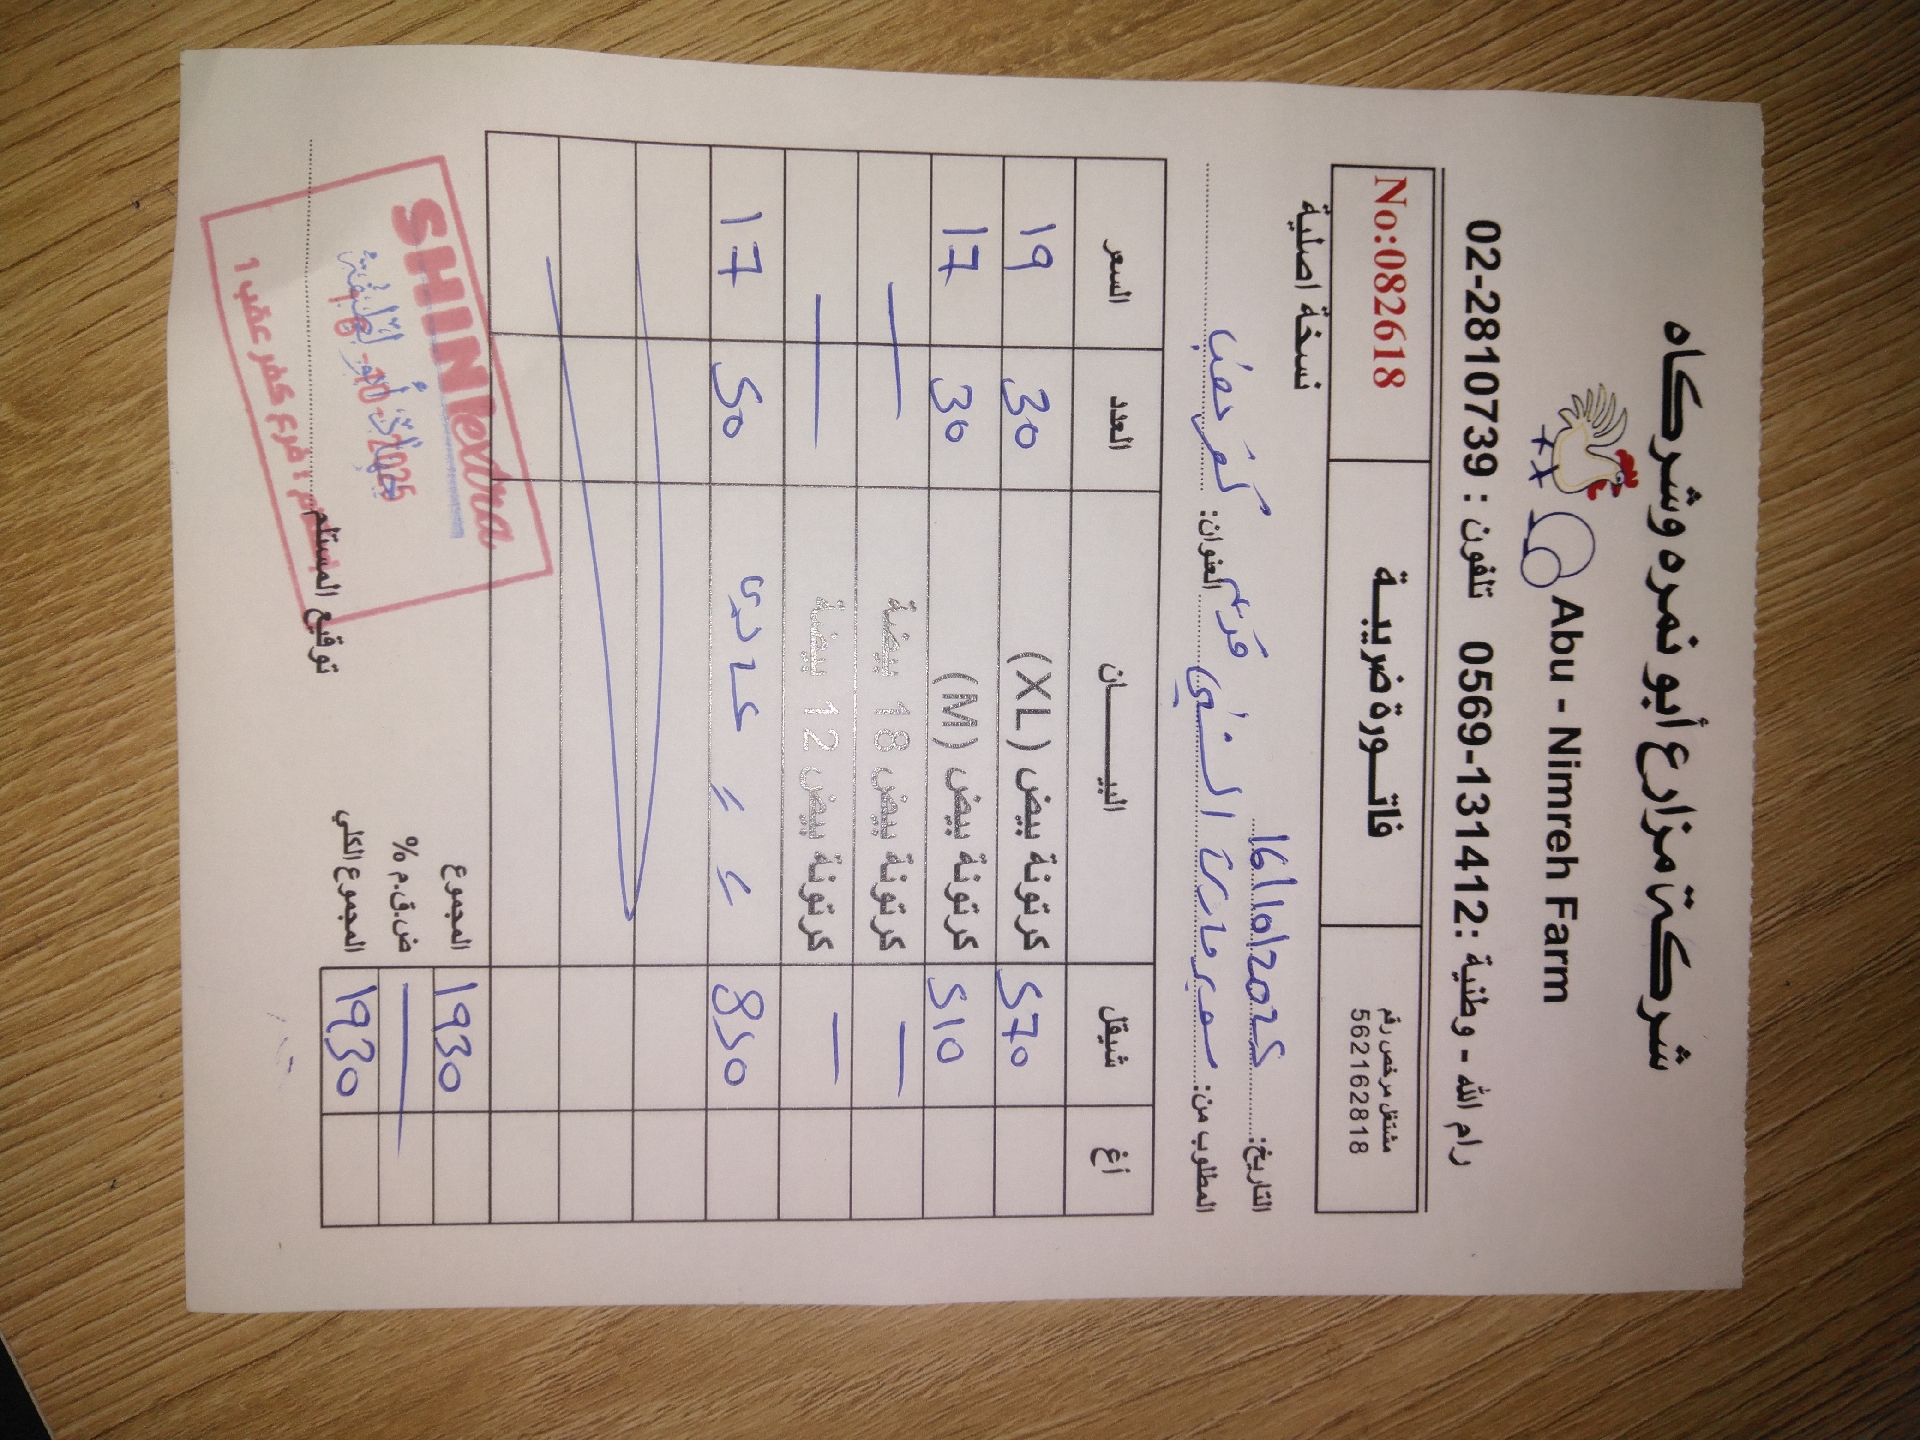 شركة مزارع أبو نمره وشركاه
Abu - Nimreh Farm
رام الله - وطنية : 0569-131412 تلفون : 02-2810739
مشتغل مرخص رقم
562162818
فاتورة ضريبية
No:082618
نسخة اصلية
التاريخ: 16/10/2025
المطلوب من: سوبر ماركت الشني العنوان: كفر عقب
أغ شيقل البيان العدد السعر
570 كرتونة بيض (XL) 30 19
510 كرتونة بيض (M) 30 17
— كرتونة بيض 18 بيضة —
— كرتونة بيض 12 بيضة —
850 = = عادي 50 17
المجموع 1930
ض.ق.م % —
المجموع الكلي 1930
توقيع المستلم
SHINI extra
16-10-2025
فرع كفر عقب 1